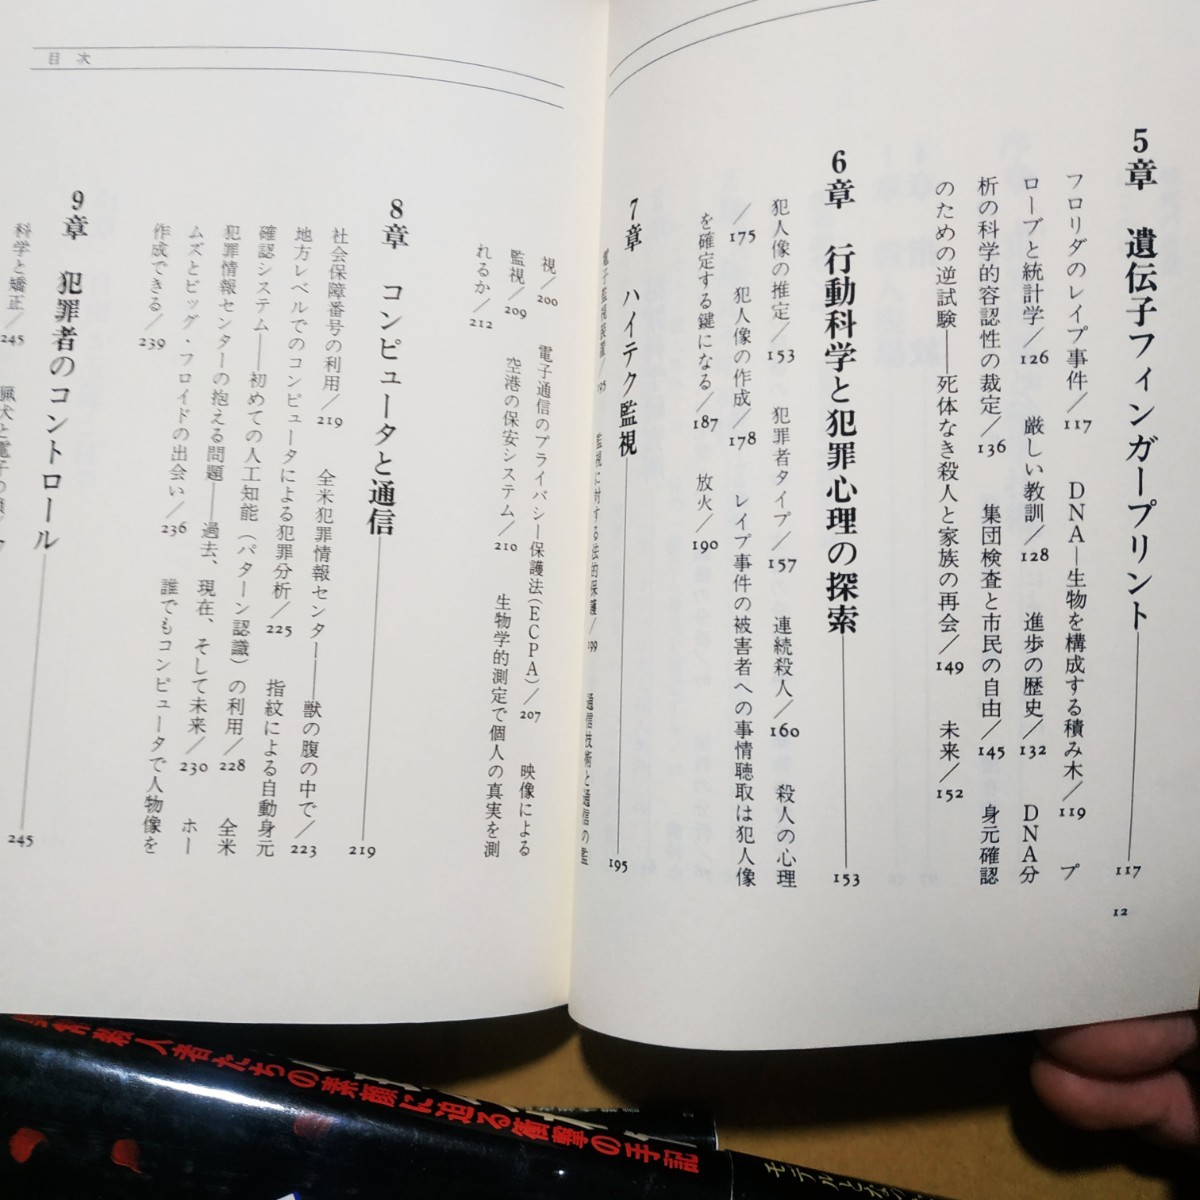 5章 遺伝子フィンガープリント 117
フロリダのレイプ事件／117 DNA―生物を構成する積み木／119 プ
ローブと統計学／126 厳しい教訓／128 進歩の歴史／132 DNA分
析の科学的容認性の裁定／136 集団検査と市民の自由／145 身元確認
のための逆試験――死体なき殺人と家族の再会／149 未来／152
6章 行動科学と犯罪心理の探索 153
犯人像の推定／153 犯罪者タイプ／157 連続殺人／160 殺人の心理
／175 犯人像の作成／178 レイプ事件の被害者への事情聴取は犯人像
を確定する鍵になる／187 放火／190
7章 ハイテク監視 195
電子監視装置／195 監視に対する法的保護／199 通信技術と通信の監
12
目次
視／200 電子通信のプライバシー保護法（ECPA）／207 映像による
監視／209 空港の保安システム／210 生物学的測定で個人の真実を測
れるか／212
8章 コンピュータと通信 219
社会保障番号の利用／219 全米犯罪情報センター――獣の腹の中で／223
地方レベルでのコンピュータによる犯罪分析／225 指紋による自動身元
確認システム――初めての人工知能（パターン認識）の利用／228 全米
犯罪情報センターの抱える問題――過去、現在、そして未来／230 ホー
ムズとビッグ・フロイドの出会い／236 誰でもコンピュータで人物像を
作成できる／239
9章 犯罪者のコントロール 245
科学と矯正／245
猟犬と電子の
殺人者たちの素顔に迫る衝撃の手記